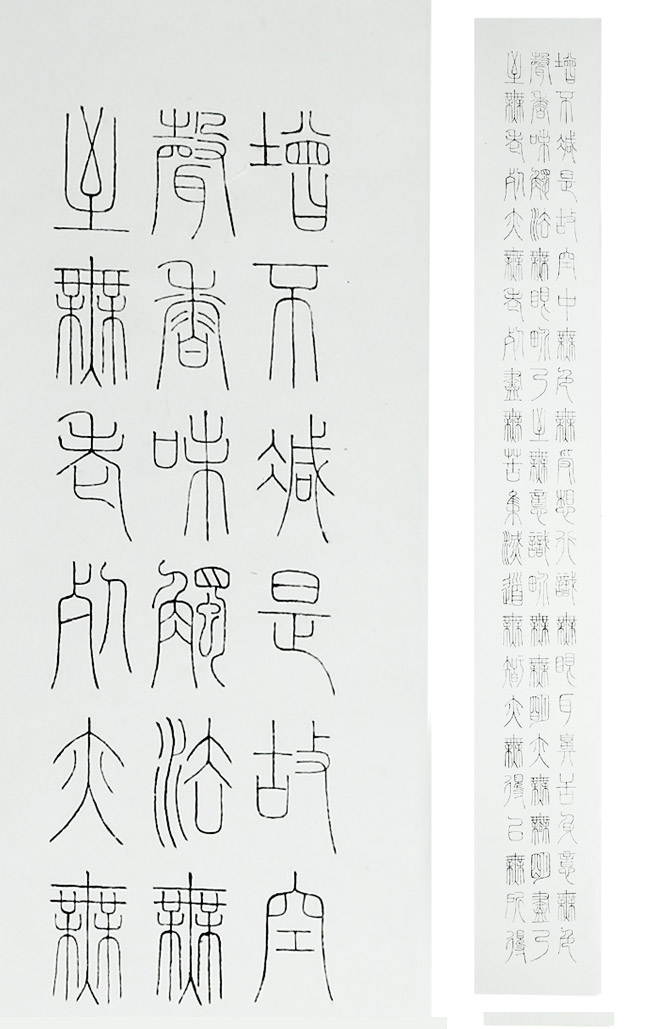 增不減是故空
聲香味觸法無
至無老死亦無
增不減是故空中無色無受想行識無眼耳鼻舌身意無色
聲香味觸法無眼界乃至無意識界無無明亦無無明盡乃
至無老死亦無老死盡無苦集滅道無智亦無得以無所得